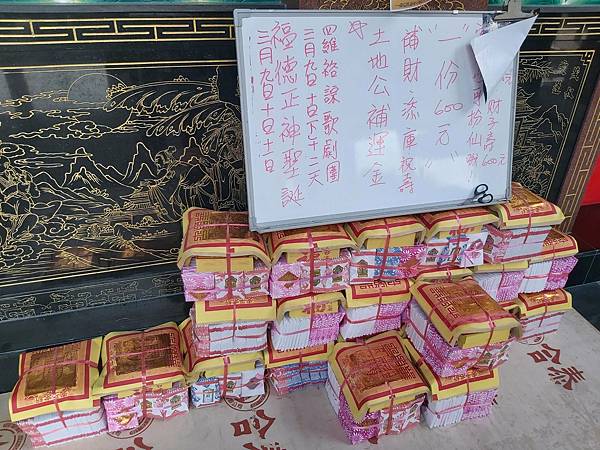 財子壽
600元
扮仙戲！
"一份600元"
補財·添庫祝壽
土地公補運金
四維裕諒歌劇團
三月九日、十日下午二天
福德正神聖誕
三月九日十日十一日
合泰
合